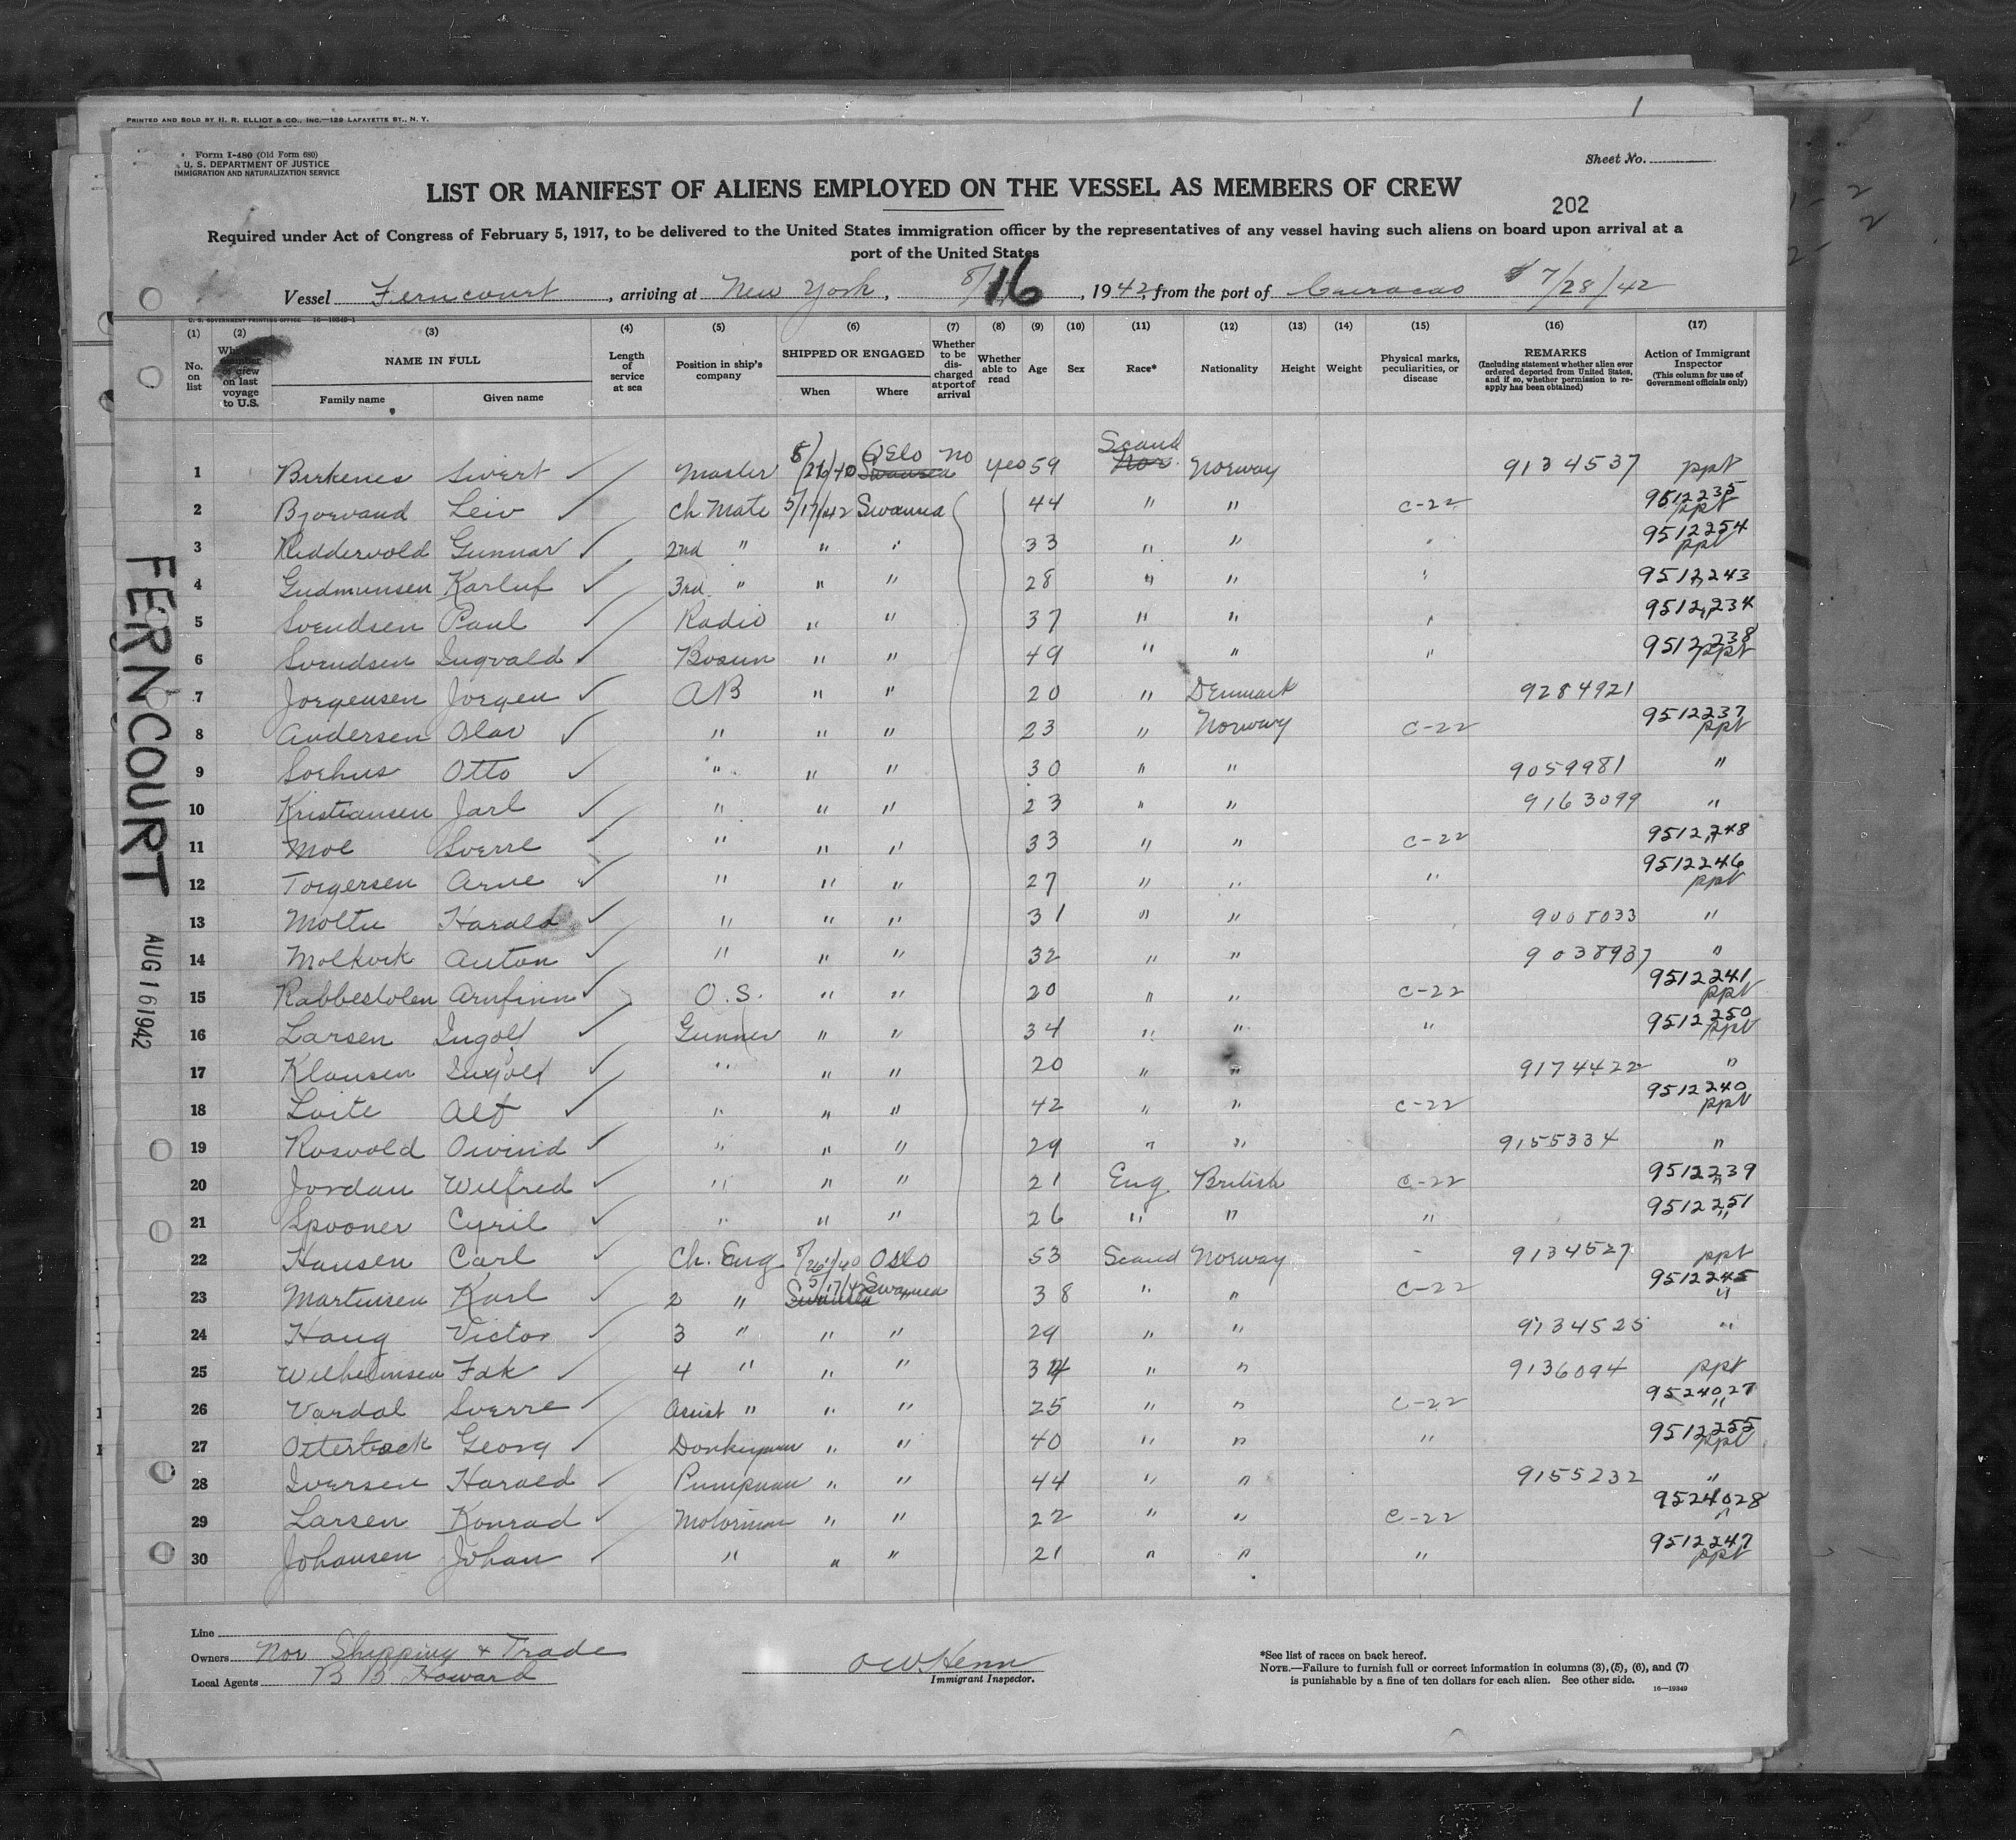 PRINTED AND SOLD BY H. R. ELLIOT & CO., INC.—129 LAFAYETTE ST., N. Y.
1
Form I-480 (Old Form 680)
U. S. DEPARTMENT OF JUSTICE
IMMIGRATION AND NATURALIZATION SERVICE
Sheet No.
LIST OR MANIFEST OF ALIENS EMPLOYED ON THE VESSEL AS MEMBERS OF CREW
202
Required under Act of Congress of February 5, 1917, to be delivered to the United States immigration officer by the representatives of any vessel having such aliens on board upon arrival at a
port of the United States
Vessel Ferncourt, arriving at New York, 8/16, 1942, from the port of Curacao 7/28/42
U. S. GOVERNMENT PRINTING OFFICE 16—19349-1
(1) (2) (3) (4) (5) (6) (7) (8) (9) (10) (11) (12) (13) (14) (15) (16) (17)
No. on list
member of crew on last voyage to U.S.
NAME IN FULL
Family name Given name
Length of service at sea
Position in ship's company
SHIPPED OR ENGAGED
When Where
Whether to be discharged at port of arrival
Whether able to read
Age
Sex
Race*
Nationality
Height
Weight
Physical marks, peculiarities, or disease
REMARKS
(Including statement whether alien ever ordered deported from United States, and if so, whether permission to reapply has been obtained)
Action of Immigrant Inspector
(This column for use of Government officials only)
1 Birkenes Sivert ✓ Master 8/26/40 Oslo Swansea no yes 59 Scand Nor. Norway 9134537 ppt
2 Bjorvand Leiv ✓ Ch. Mate 5/17/42 Swansea 44 " " C-22 9512235 ppt
3 Riddervold Gunnar ✓ 2nd " " " 33 " " " 9512254 ppt
4 Gudmunsen Karluf ✓ 3rd " " " 28 " " " 9512243 "
5 Svendsen Paul ✓ Radio " " 37 " " " 9512234 "
6 Svendsen Ingvald ✓ Bosun " " 49 " " " 9512238 ppt
7 Jorgensen Jorgen ✓ AB " " 20 " Denmark 9284921
8 Andersen Olav ✓ " " " 23 " Norway C-22 9512237 ppt
9 Sorhus Otto ✓ " " " 30 " " 9059981 "
10 Kristiansen Jarl ✓ " " " 23 " " 9163099 "
11 Moe Sverre ✓ " " " 33 " " C-22 9512248 "
12 Torgersen Arne ✓ " " " 27 " " " 9512246 ppt
13 Moltu Harald ✓ " " " 31 " " 9008033 "
14 Molkvik Anton ✓ " " " 32 " " 9038937 "
15 Rabbestolen Arnfinn ✓ O.S. " " 20 " " C-22 9512241 ppt
16 Larsen Ingolf ✓ Gunner " " 34 " " " 9512250 ppt
17 Klausen Ingolf ✓ " " " 20 " " 9174422 "
18 Loite Alf ✓ " " " 42 " " C-22 9512240 ppt
19 Rosvold Oivind ✓ " " " 29 " " 9155334 "
20 Jordan Wilfred ✓ " " " 21 Eng British C-22 9512239 "
21 Spooner Cyril ✓ " " " 26 " " " 9512251 "
22 Hansen Carl ✓ Ch. Eng 8/26/40 Oslo 53 Scand Norway - 9134527 ppt
23 Martinsen Karl ✓ 2 " 5/17/42 Swansea Swansea 38 " " C-22 9512245 "
24 Haug Victor ✓ 3 " " " 29 " " 9134525 "
25 Wilhelmsen Fdk ✓ 4 " " " 34 " " 9136094 ppt
26 Vardal Sverre ✓ Assist " " " 25 " " C-22 9524027 "
27 Otterbeck Georg ✓ Donkeyman " " 40 " " " 9512255 ppt
28 Iversen Harald ✓ Pumpman " " 44 " " 9155232 "
29 Larsen Konrad ✓ Motorman " " 22 " " C-22 9524028 "
30 Johansen Johan ✓ " " " 21 " " " 9512247 ppt
FERNCOURT
AUG 16 1942
Line
Owners Nor Shipping & Trade
Local Agents B B Howard
O W Henn
Immigrant Inspector.
*See list of races on back hereof.
NOTE.—Failure to furnish full or correct information in columns (3), (5), (6), and (7)
is punishable by a fine of ten dollars for each alien. See other side.
16—19349